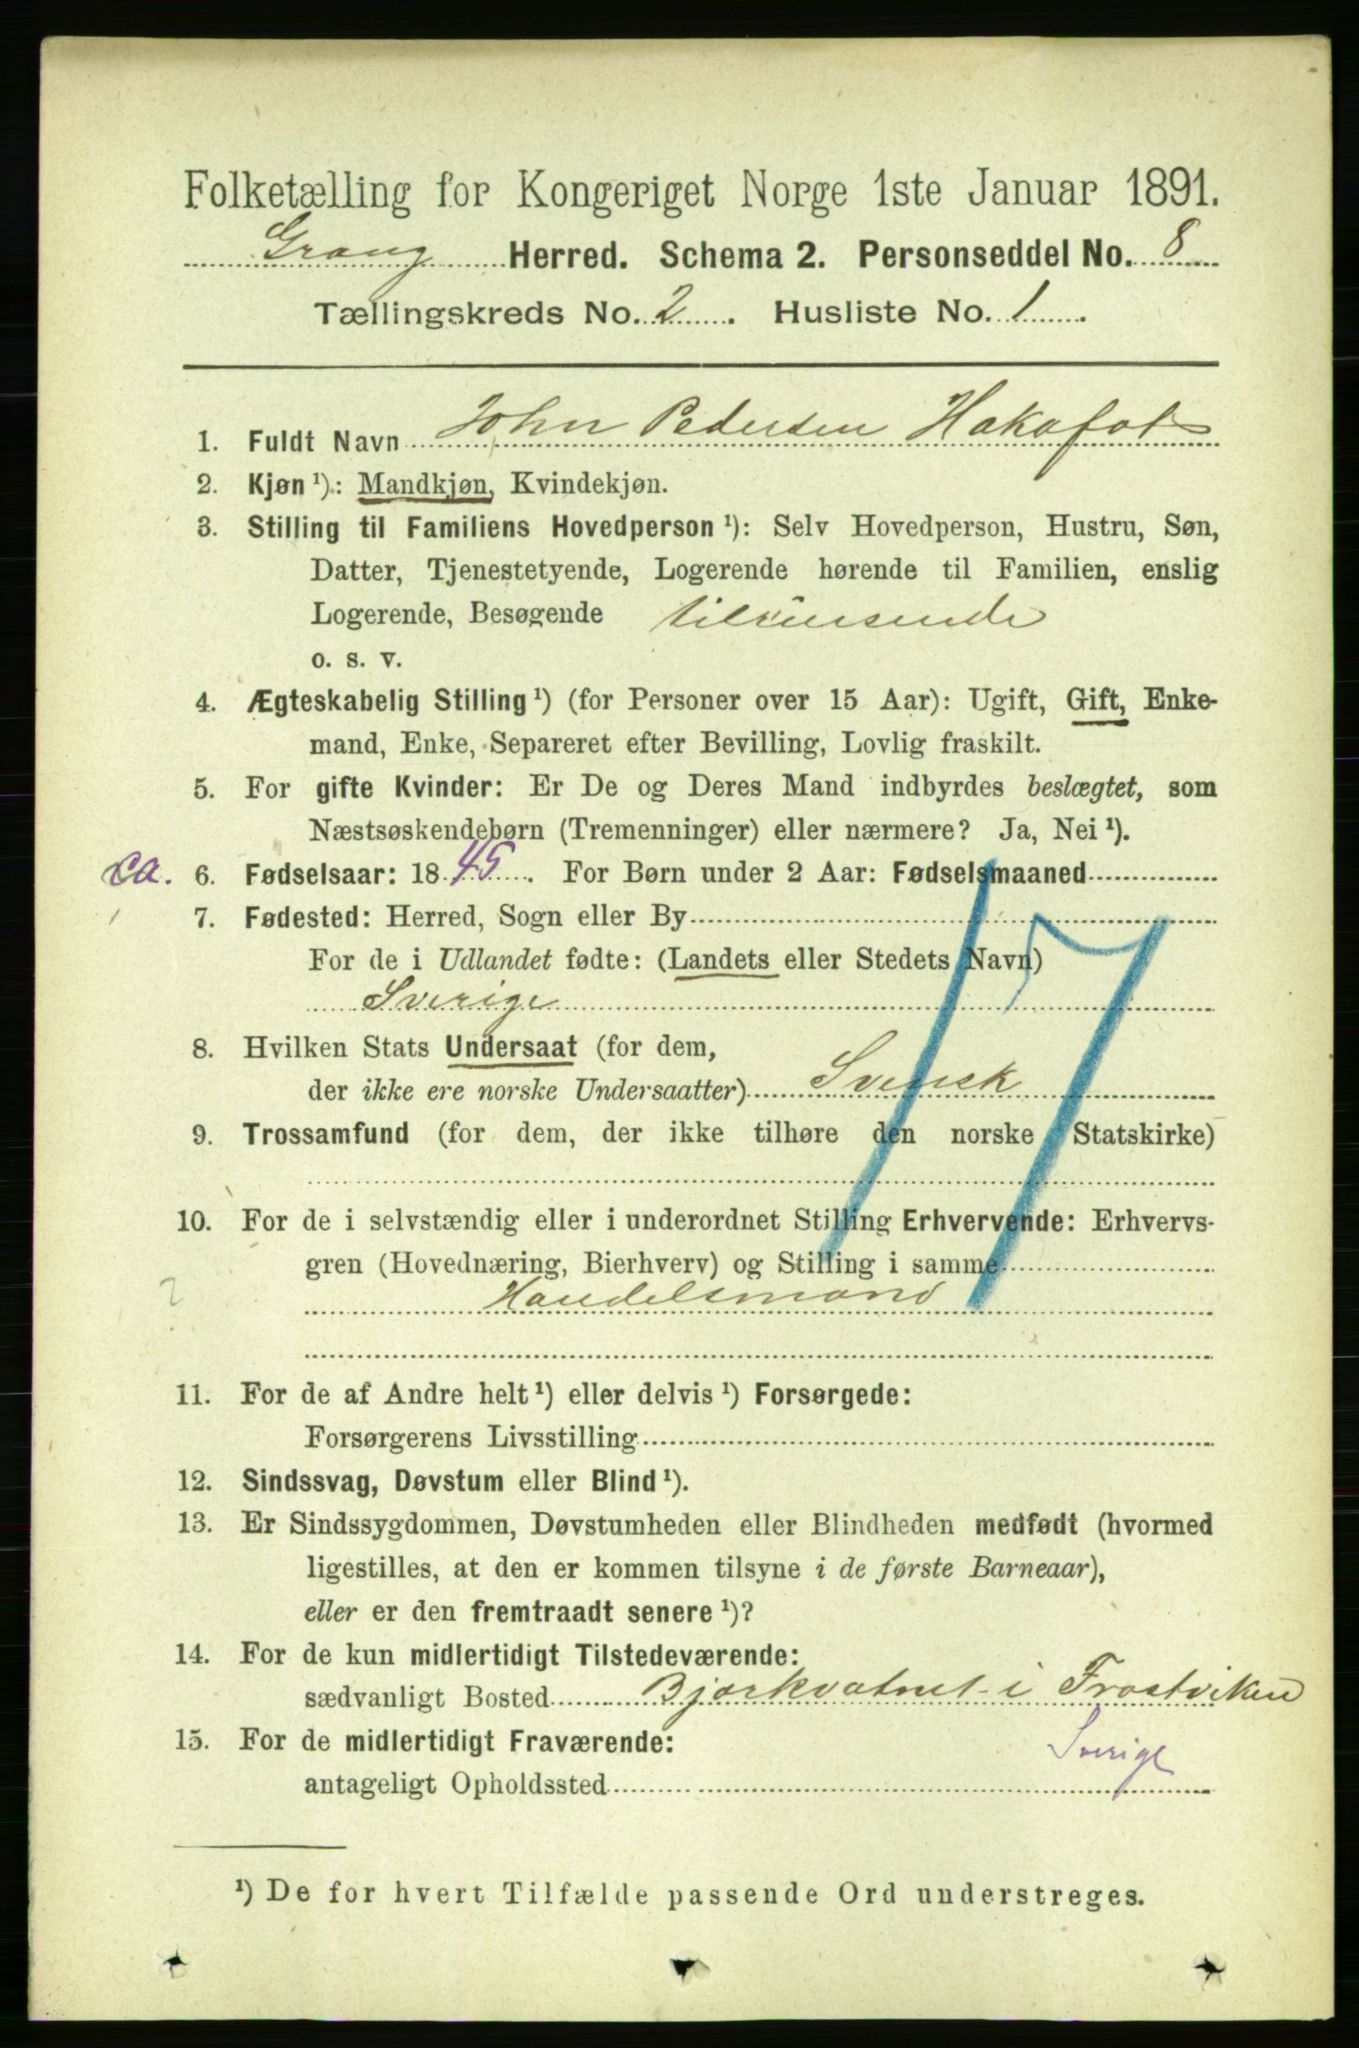 Folketælling for Kongeriget Norge 1ste Januar 1891.
Grong Herred. Schema 2. Personseddel No. 8
Tællingskreds No. 2. Husliste No. 1.
1. Fuldt Navn John Pedersen Hakafot
2. Kjøn ¹): Mandkjøn, Kvindekjøn.
3. Stilling til Familiens Hovedperson ¹): Selv Hovedperson, Hustru, Søn,
Datter, Tjenestetyende, Logerende hørende til Familien, enslig
Logerende, Besøgende tilreisende
o. s. v.
4. Ægteskabelig Stilling ¹) (for Personer over 15 Aar): Ugift, Gift, Enke-
mand, Enke, Separeret efter Bevilling, Lovlig fraskilt.
5. For gifte Kvinder: Er De og Deres Mand indbyrdes beslægtet, som
Næstsøskendebørn (Tremenninger) eller nærmere? Ja, Nei ¹).
ca. 6. Fødselsaar: 1845. For Børn under 2 Aar: Fødselsmaaned
7. Fødested: Herred, Sogn eller By
For de i Udlandet fødte: (Landets eller Stedets Navn)
Sverige
8. Hvilken Stats Undersaat (for dem,
der ikke ere norske Undersaatter) Svensk
9. Trossamfund (for dem, der ikke tilhøre den norske Statskirke)
17
10. For de i selvstændig eller i underordnet Stilling Erhvervende: Erhvervs-
gren (Hovednæring, Bierhverv) og Stilling i samme
2 Handelsmand
11. For de af Andre helt ¹) eller delvis ¹) Forsørgede:
Forsørgerens Livsstilling
12. Sindssvag, Døvstum eller Blind ¹).
13. Er Sindssygdommen, Døvstumheden eller Blindheden medfødt (hvormed
ligestilles, at den er kommen tilsyne i de første Barneaar),
eller er den fremtraadt senere ¹)?
14. For de kun midlertidigt Tilstedeværende:
sædvanligt Bosted Bjorkvatnet i Frostviken
15. For de midlertidigt Fraværende: Sverige
antageligt Opholdssted
¹) De for hvert Tilfælde passende Ord understreges.